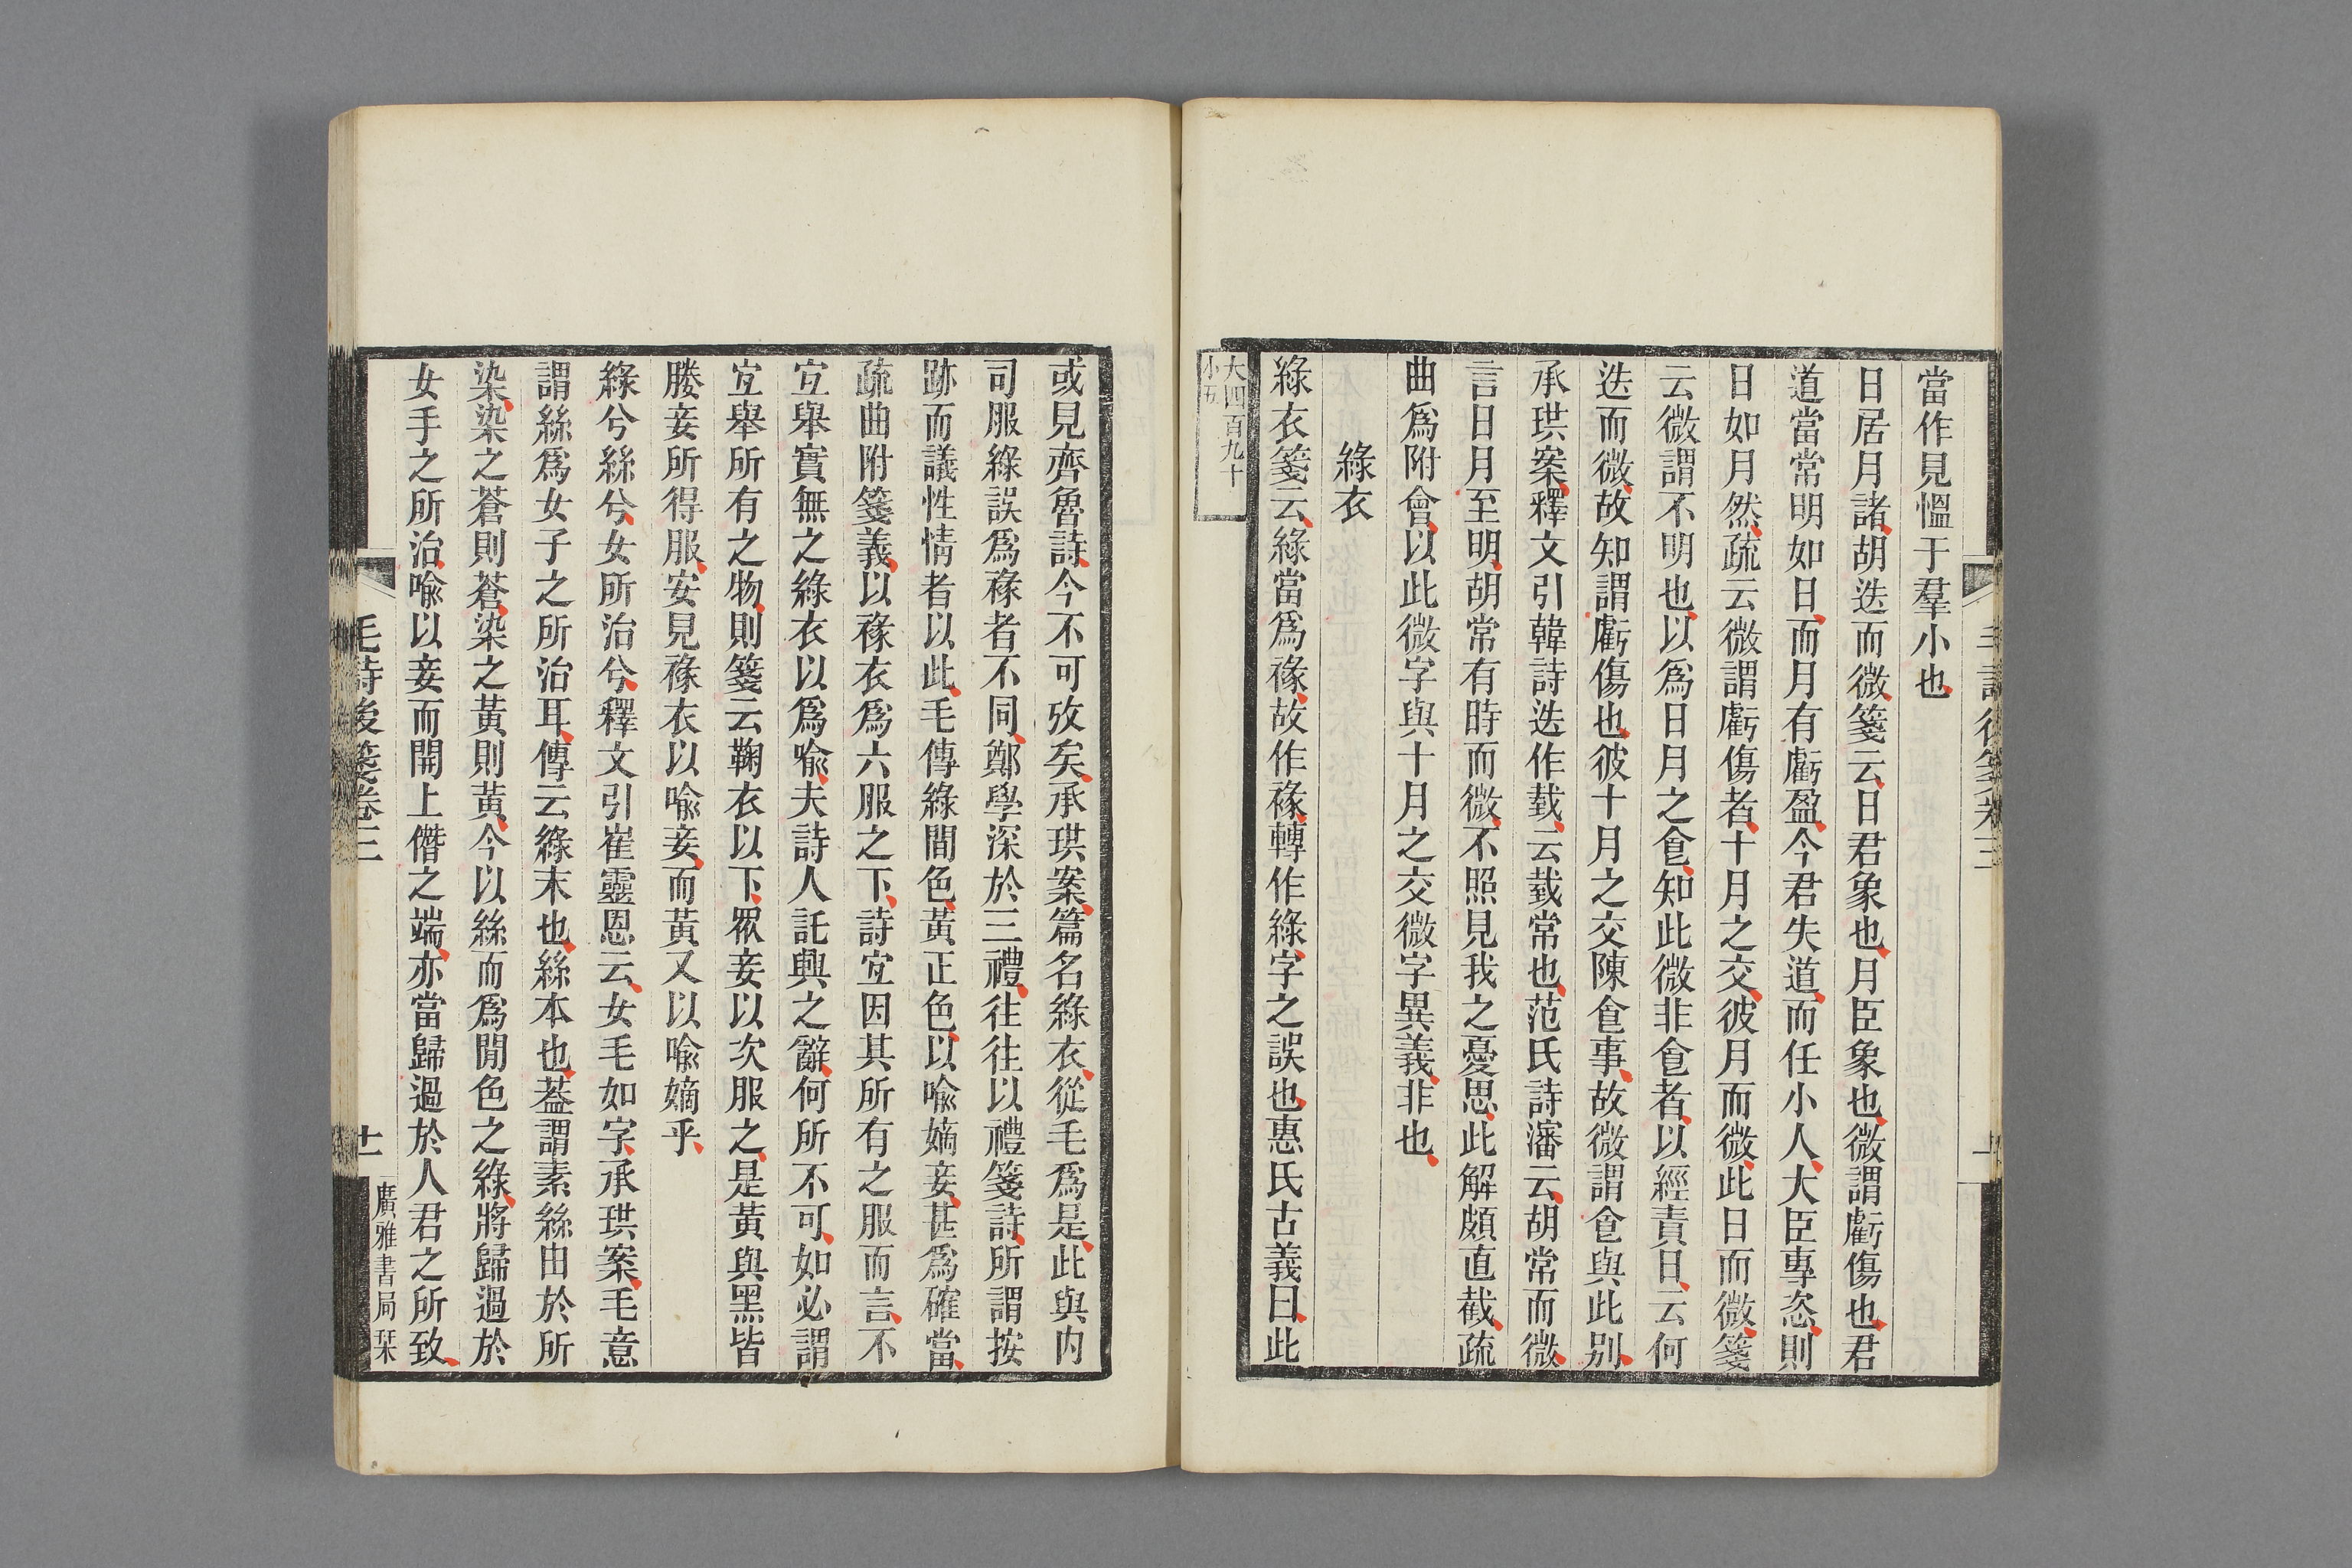 當作見慍于羣小也
日居月諸胡迭而微箋云日君象也月臣象也微謂虧傷也君
道當常明如日而月有虧盈今君失道而任小人大臣專恣則
日如月然疏云微謂虧傷者十月之交彼月而微此日而微箋
云微謂不明也以爲日月之食知此微非食者以經責日云何
迭而微故知謂虧傷也彼十月之交陳食事故微謂食與此別
承珙案釋文引韓詩迭作臷云臷常也范氏詩瀋云胡常而微
言日月至明胡常有時而微不照見我之憂思此解頗直截疏
曲爲附會以此微字與十月之交微字異義非也
綠衣
綠衣箋云綠當爲褖故作褖轉作綠字之誤也惠氏古義曰此
大四百九十
小五
或見齊魯詩今不可攷矣承珙案篇名綠衣從毛爲是此與内
司服綠誤爲褖者不同鄭學深於三禮往往以禮箋詩所謂按
跡而議性情者以此毛傳綠閒色黃正色以喩嫡妾甚爲確當
疏曲附箋義以褖衣爲六服之下詩宜因其所有之服而言不
宜舉實無之綠衣以爲喩夫詩人託興之辭何所不可如必謂
宜舉所有之物則箋云鞠衣以下眾妾以次服之是黃與黑皆
媵妾所得服安見褖衣以喩妾而黃又以喩嫡乎
綠兮絲兮女所治兮釋文引崔靈恩云女毛如字承珙案毛意
謂絲爲女子之所治耳傳云綠末也絲本也葢謂素絲由於所
染染之蒼則蒼染之黃則黃今以絲而爲閒色之綠將歸過於
女手之所治喩以妾而開上僭之端亦當歸過於人君之所致
毛詩後箋卷三
十一
廣雅書局栞